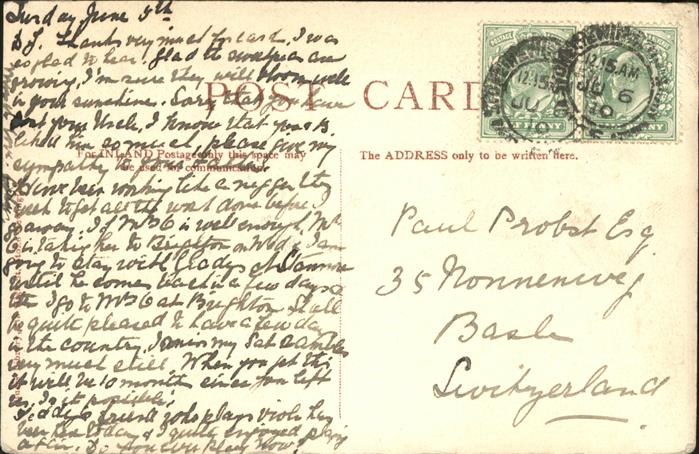 Sunday June 5th
D.P. Thanks very much for card, I was
so glad to hear. Glad the sweetpeas are
growing, I'm sure they will bloom well
in your sunshine. Sorry that you have
lost your Uncle, I know that you
liked him so much, please give my
sympathy to your Father.
Have been working like a nigger this
week to get all the work done before I
go away. If Mrs C is well enough, Mr
C is taking her to Brighton on Wed. I am
going to stay with Gladys at Stanmore
until he comes back in a few days &
then I go to Mrs C at Brighton. Shall
be quite pleased to have a few days
in the country, I miss my Sat rambles
very much still. When you get this
it will be 10 months since you left
us, is it possible.
Teddy & friend who plays violin have
been here today & I quite enjoyed playing
again. Do you ever play now.
POST CARD
For INLAND Postage only this space may
be used for communication.
The ADDRESS only to be written here.
12.15 AM
JU 6
10
12.15 AM
JU 6
10
Paul Probst Esq
35 Nonnenweg
Basle
Switzerland